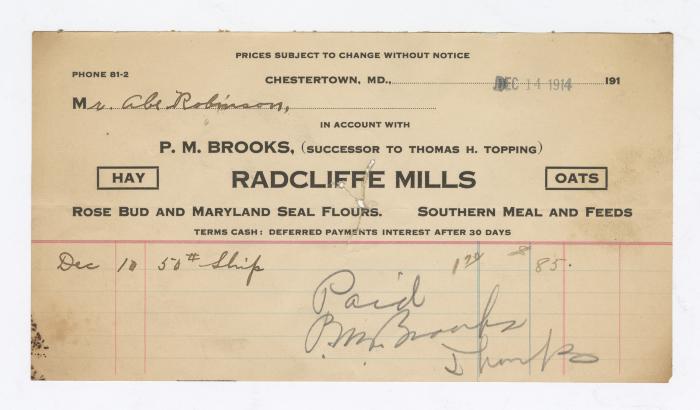 PRICES SUBJECT TO CHANGE WITHOUT NOTICE
PHONE 81-2
CHESTERTOWN, MD., DEC 14 1914 191
Mr. Abe Robinson,
IN ACCOUNT WITH
P. M. BROOKS, (SUCCESSOR TO THOMAS H. TOPPING)
HAY RADCLIFFE MILLS OATS
ROSE BUD AND MARYLAND SEAL FLOURS. SOUTHERN MEAL AND FEEDS
TERMS CASH: DEFERRED PAYMENTS INTEREST AFTER 30 DAYS
Dec 10 50# Ship 85.
Paid
P.M. Brooks
Thanks